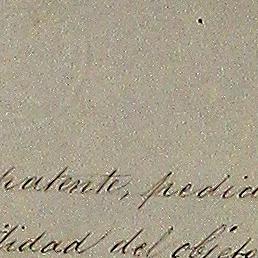 patente, pedid
lidad del objeto